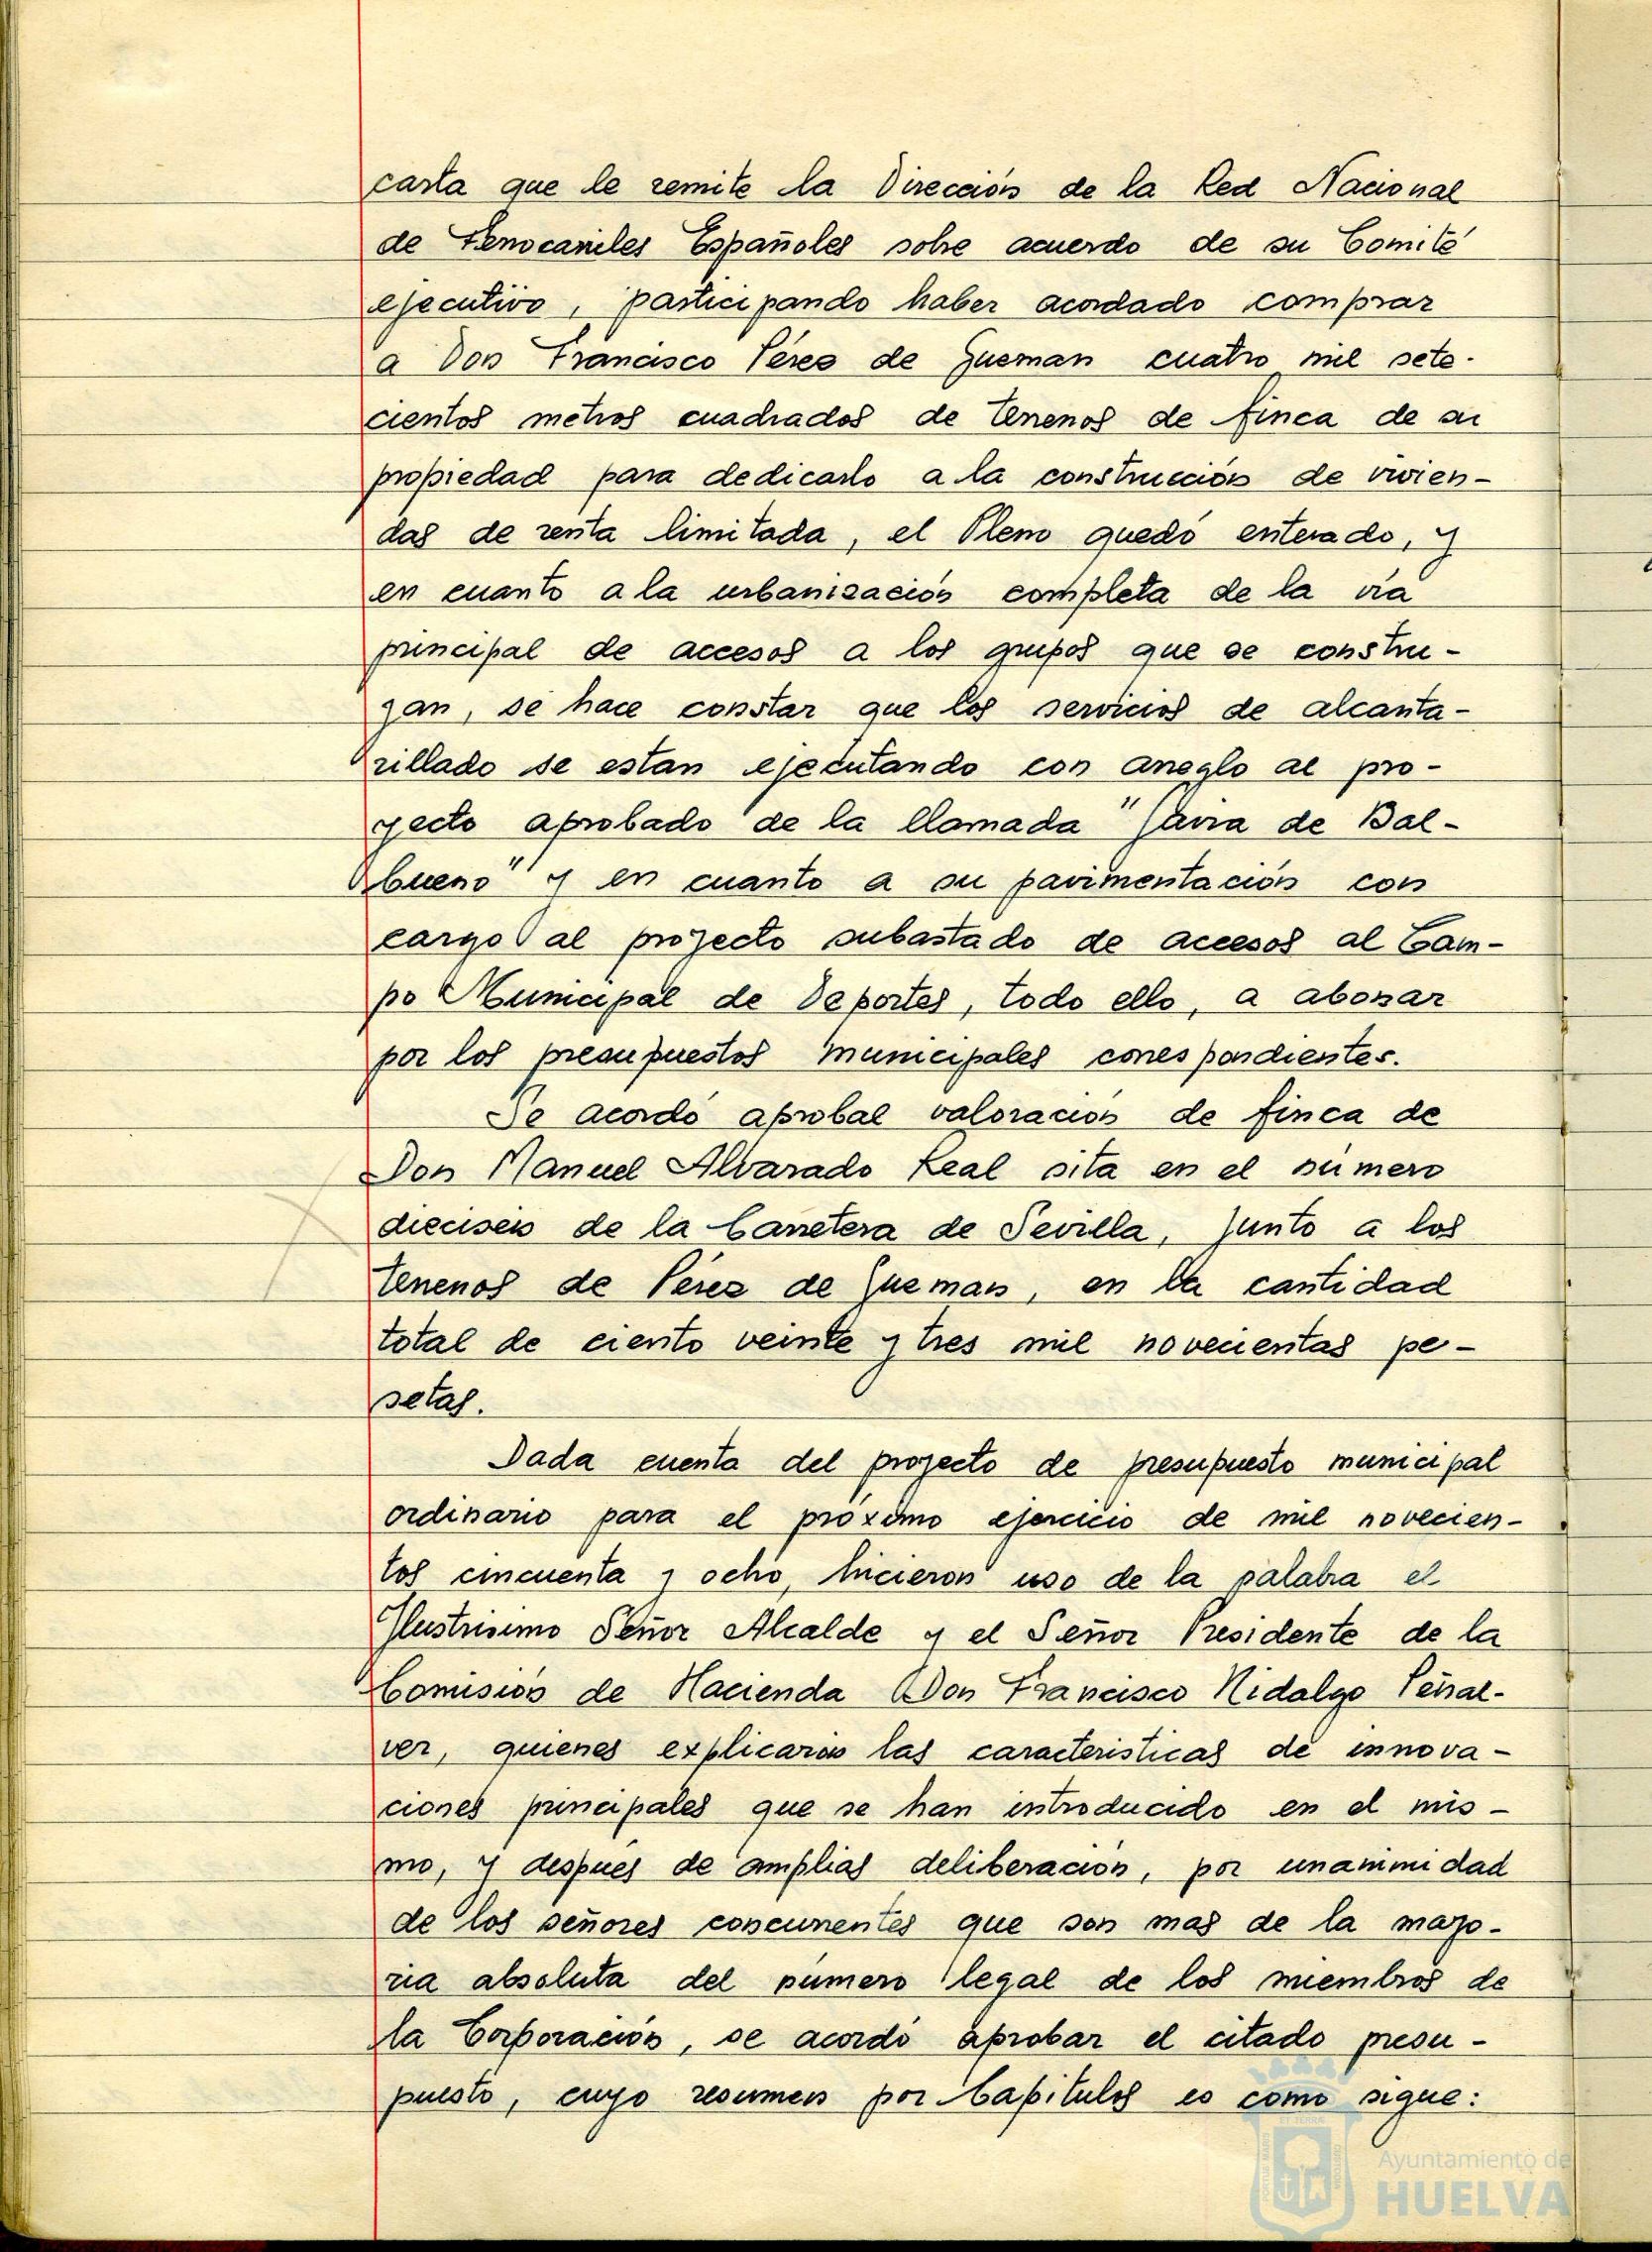 carta que le remite la Dirección de la Red Nacional
de Ferrocarriles Españoles sobre acuerdo de su Comité
ejecutivo, participando haber acordado comprar
a Don Francisco Pérez de Guzman cuatro mil sete-
cientos metros cuadrados de terrenos de finca de su
propiedad para dedicarlo a la construcción de vivien-
das de renta limitada, el Pleno quedó enterado, y
en cuanto a la urbanización completa de la vía
principal de accesos a los grupos que se constru-
yan, se hace constar que los servicios de alcanta-
rillado se estan ejecutando con arreglo al pro-
yecto aprobado de la llamada "Gavia de Bal-
bueno" y en cuanto a su pavimentación con
cargo al proyecto subastado de accesos al Cam-
po Municipal de Deportes, todo ello, a abonar
por los presupuestos municipales correspondientes.
Se acordó aprobal valoración de finca de
Don Manuel Alvarado Leal sita en el número
dieciseis de la Carretera de Sevilla, junto a los
terrenos de Pérez de Guzman, en la cantidad
total de ciento veinte y tres mil novecientas pe-
setas.
Dada cuenta del proyecto de presupuesto municipal
ordinario para el próximo ejercicio de mil novecien-
tos cincuenta y ocho, hicieron uso de la palabra el
Ilustrisimo Señor Alcalde y el Señor Presidente de la
Comisión de Hacienda Don Francisco Hidalgo Peñal-
ver, quienes explicaron las caracteristicas de innova-
ciones principales que se han introducido en el mis-
mo, y después de amplias deliberación, por unanimidad
de los señores concurrentes que son mas de la mayo-
ria absoluta del número legal de los miembros de
la Corporación, se acordó aprobar el citado presu-
puesto, cuyo resumen por Capitulos es como sigue:
Ayuntamiento de
HUELVA